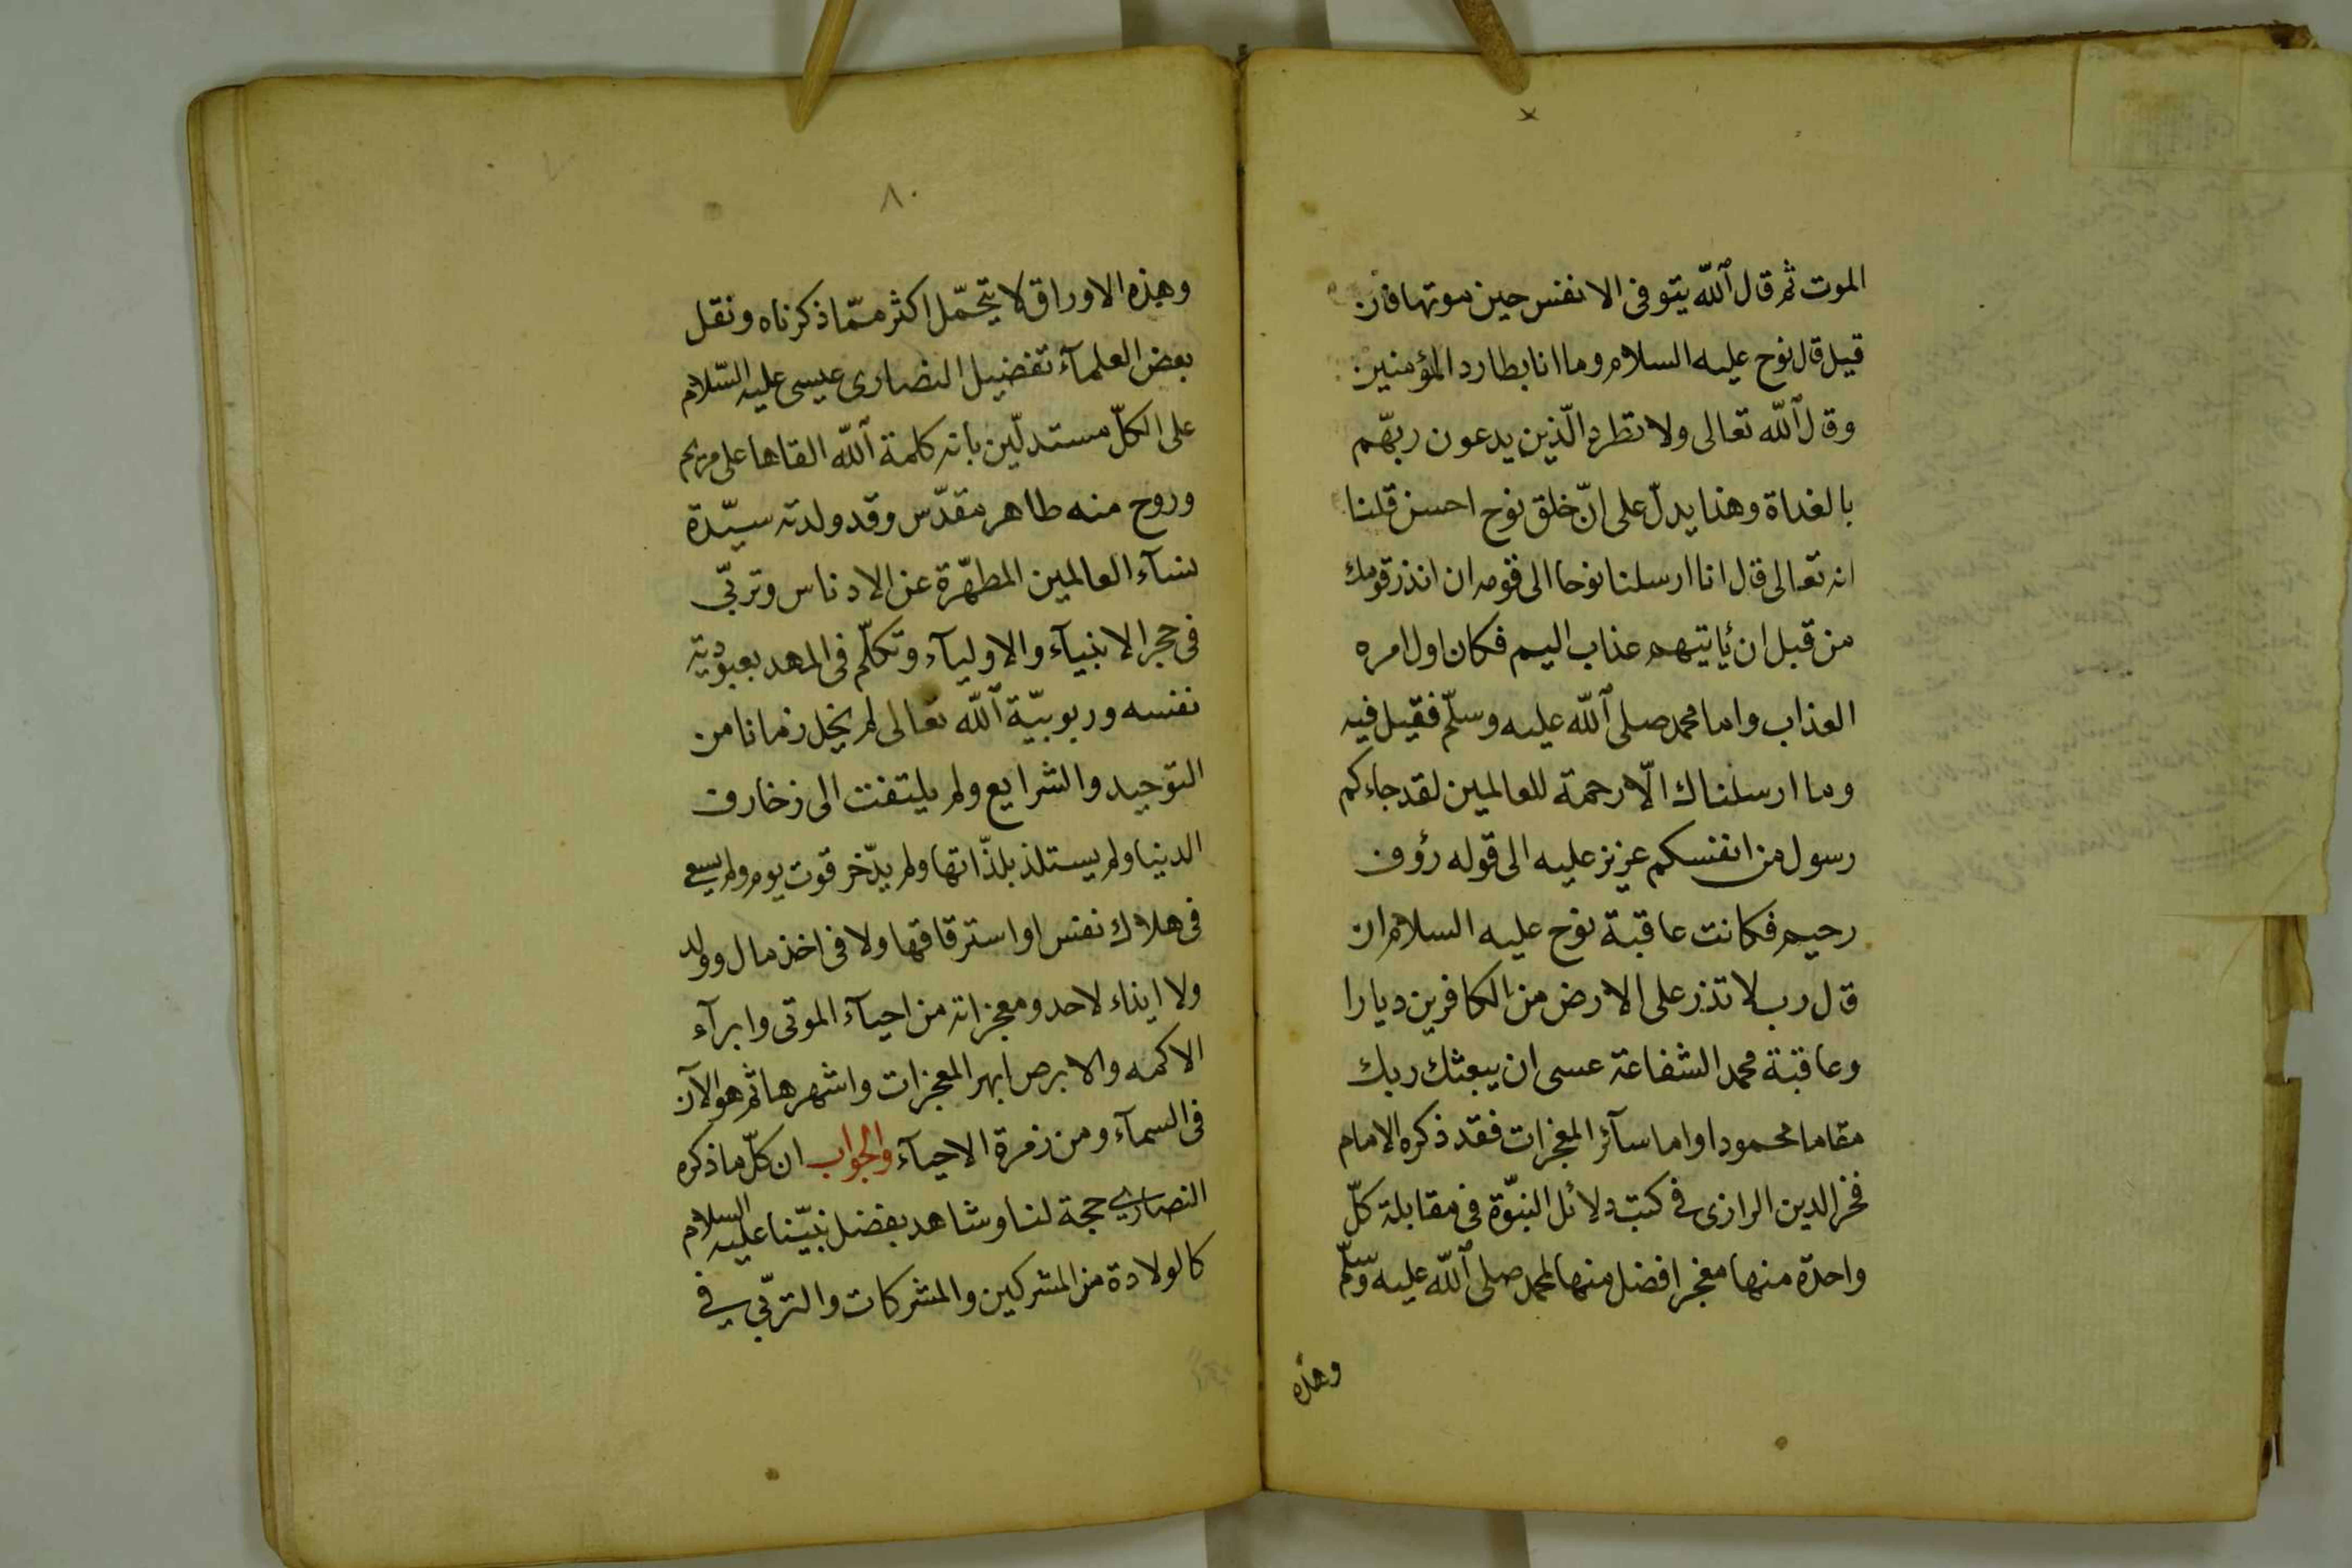 الموت ثم قال الله يتوفى الانفس حين موتها فان
قيل قال نوح عليه السلام وما انا بطارد المؤمنين
وقال الله تعالى ولا تطرد الّذين يدعون ربّهم
بالغداة وهذا يدلّ على انّ خلق نوح احسن قلنا
انه تعالى قال انا ارسلنا نوحا الى قومه ان انذر قومك
من قبل ان يأتيهم عذاب اليم فكان اول امره
العذاب واما محمد صلى الله عليه وسلّم فقيل فيه
وما ارسلناك الّا رحمة للعالمين لقد جاءكم
رسول من انفسكم عزيز عليه الى قوله رؤف
رحيم فكانت عاقبة نوح عليه السلام ان
قال رب لا تذر على الارض من الكافرين ديارا
وعاقبة محمد الشفاعة عسى ان يبعثك ربك
مقاما محمودا واما سآئر المعجزات فقد ذكره الامام
فخر الدين الرازى فى كتب دلائل النبوّة فى مقابلة كلّ
واحدة منها معجز افضل منها لمحمد صلى الله عليه وسلّم
وهذه
٨٠
وهذه الاوراق لا يتحمّل اكثر ممّا ذكرناه ونقل
بعض العلمآء تفضيل النصارى عيسى عليه السّلام
على الكلّ مستدلّين بانه كلمة الله القاها على مريم
وروح منه طاهر مقدّس وقد ولدته سيّدة
نسآء العالمين المطهّرة عن الادناس وتربّى
فى حجر الانبيآء والاوليآء وتكلّم فى المهد بعبوديّة
نفسه وربوبيّة الله تعالى لم يخل زمانا من
التوحيد والشرايع ولم يلتفت الى زخارف
الدنيا ولم يستلذ بلذّاتها ولم يدّخر قوت يوم ولم يسع
فى هلاك نفس او استرقاقها ولا فى اخذ مال وولد
ولا ايذاء لاحد ومعجزاته من احيآء الموتى وابرآء
الاكمه والابرص ابهر المعجزات واشهرها ثم هو الآن
فى السمآء ومن زمرة الاحيآء والجواب ان كلّ ما ذكره
النصارى حجة لنا وشاهد بفضل نبيّنا عليه السلام
كالولادة من المشركين والمشركات والتربّى فى